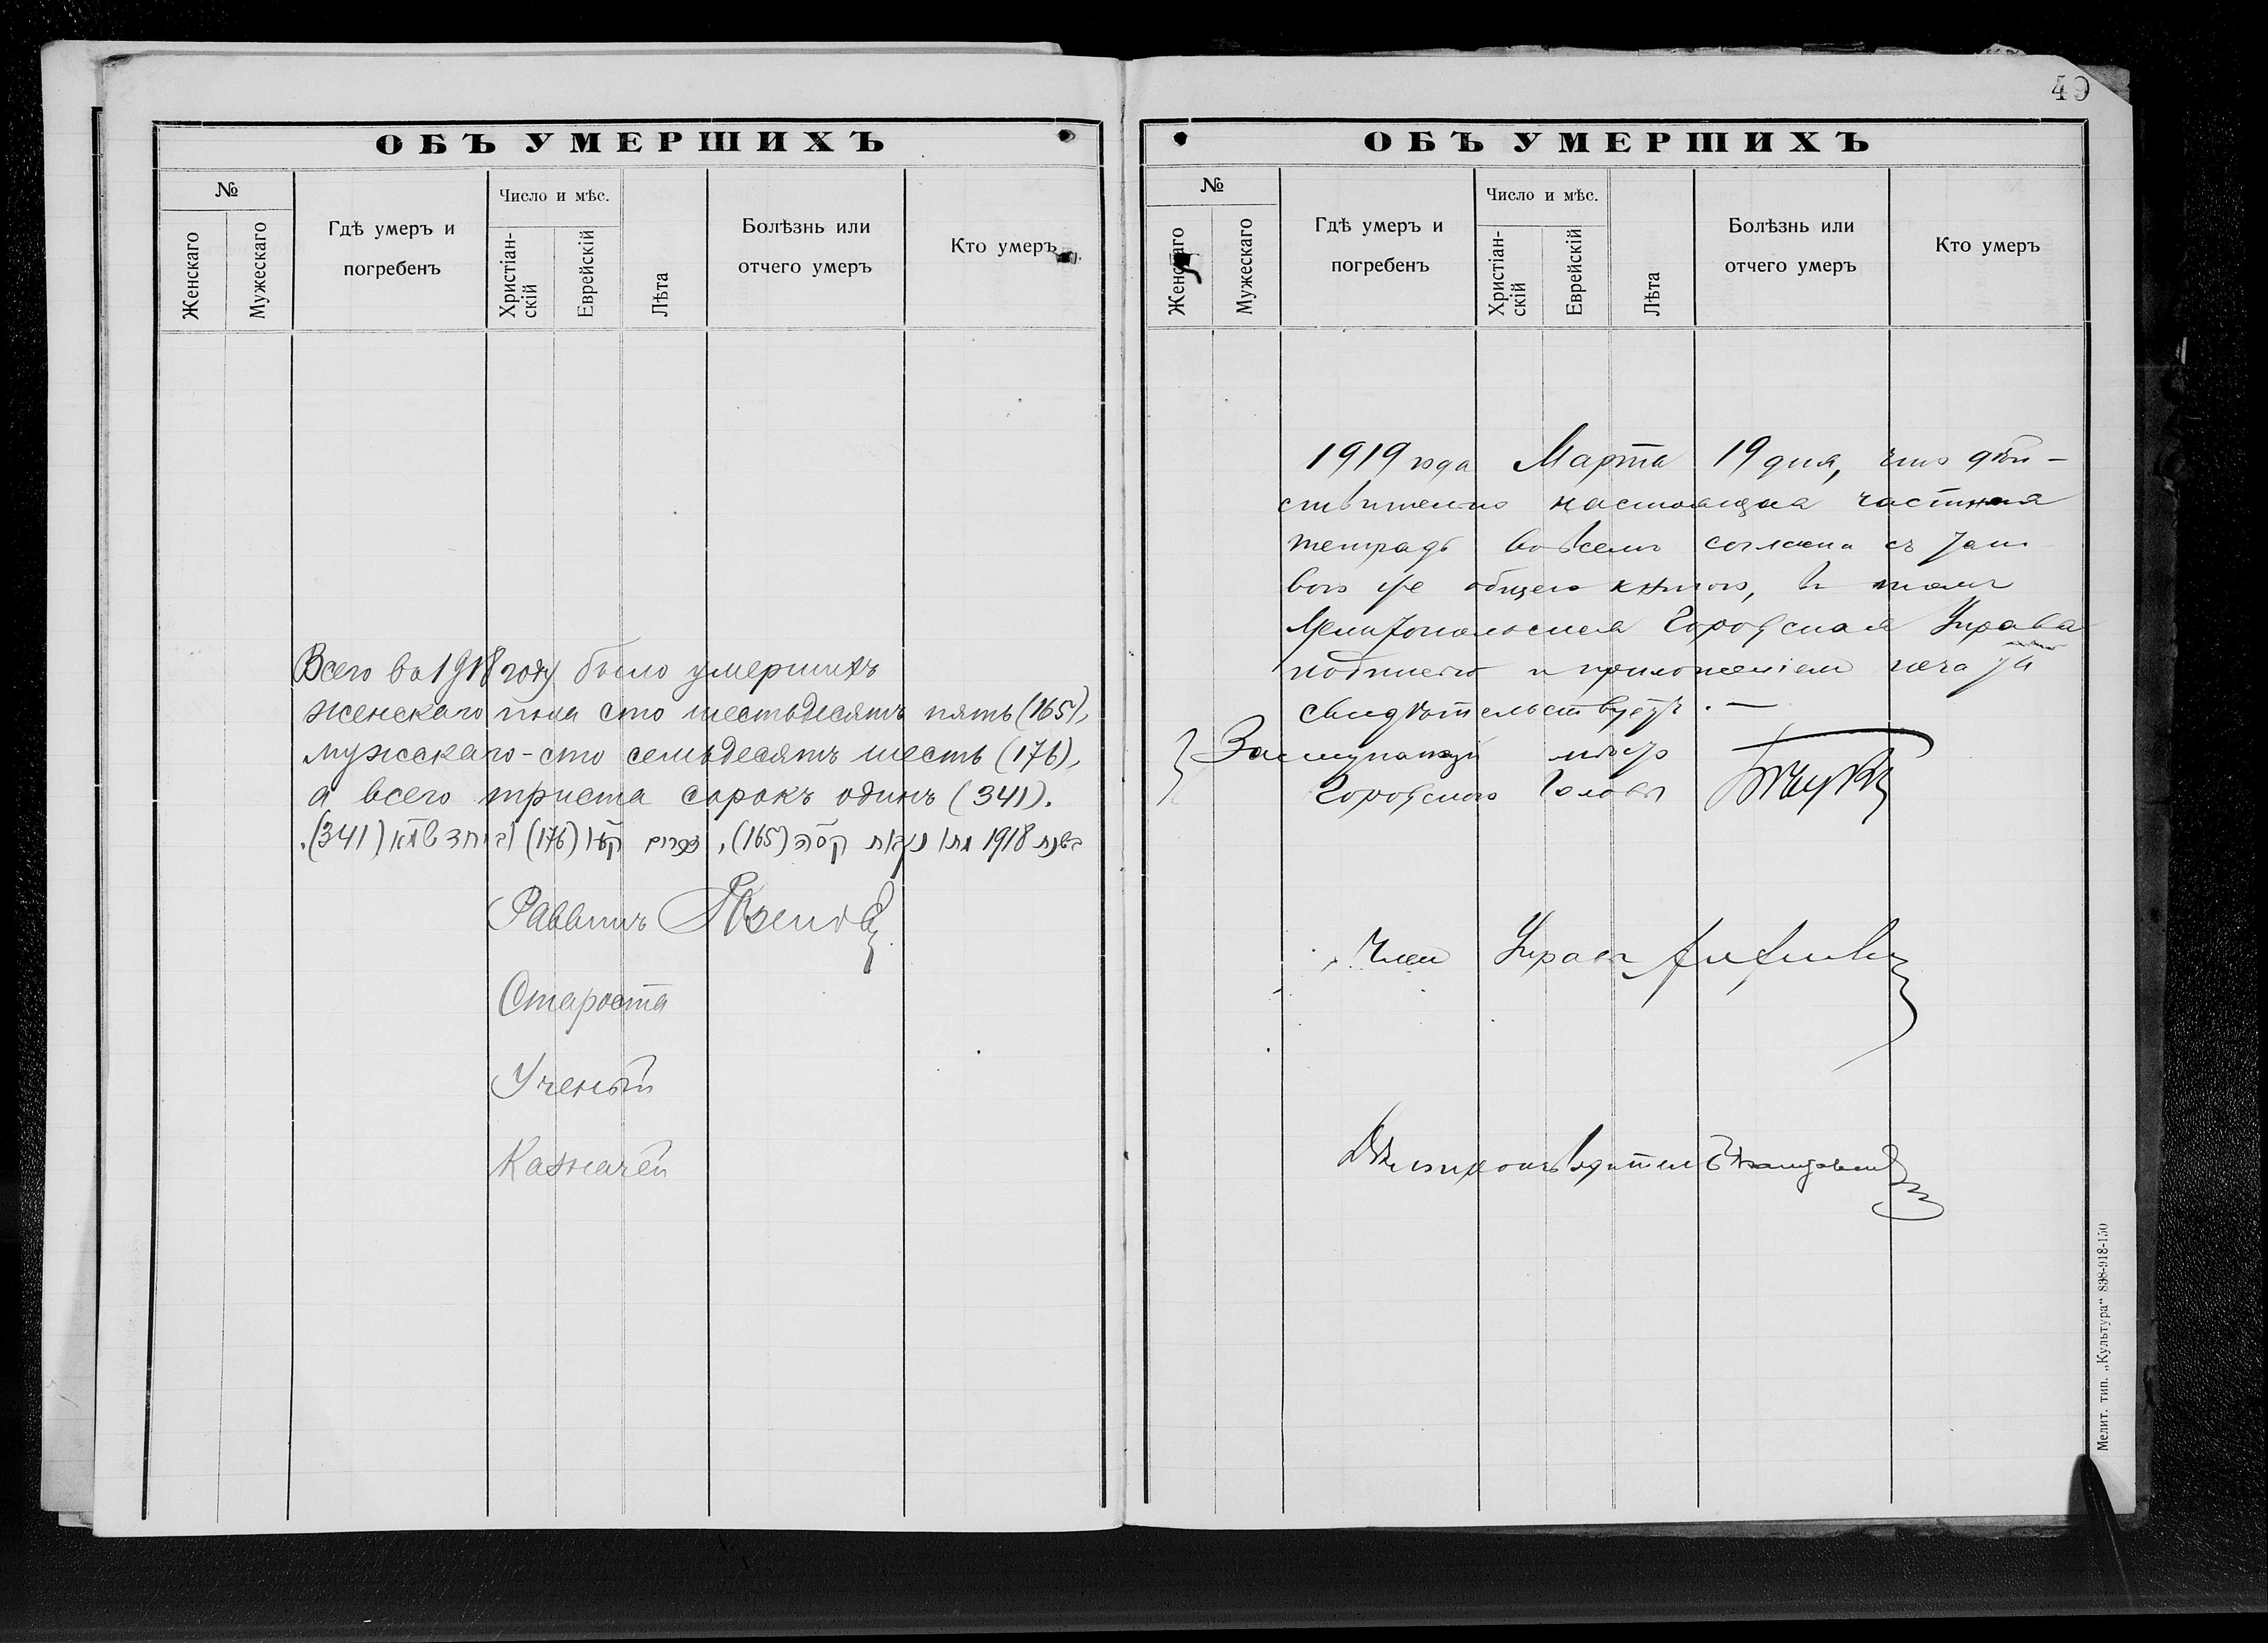 ОБЪ УМЕРШИХЪ
№
Женскаго
Мужескаго
Гдѣ умеръ и
погребенъ
Число и мѣс.
Христіан-
скій
Еврейскій
Лѣта
Болѣзнь или
отчего умеръ
Кто умеръ
Всего въ 1918 году было умершихъ
женскаго пола сто шестьдесятъ пять (165),
мужскаго - сто семьдесятъ шесть (176),
а всего триста сорокъ одинъ (341).
בשנת 1918 מתו נקבות קסה (165), זכרים קעו (176) וביחד שמא (341).
Раввинъ
Староста
Ученый
Казначей
49
ОБЪ УМЕРШИХЪ
№
Женскаго
Мужескаго
Гдѣ умеръ и
погребенъ
Число и мѣс.
Христіан-
скій
Еврейскій
Лѣта
Болѣзнь или
отчего умеръ
Кто умеръ
1919 года Марта 19 дня, что дѣй-
ствительно настоящая частная
тетрадь во всемъ согласна съ
общею книгою, въ томъ
Мелитопольская Городская Управа
подписью и приложеніем печати
свидѣтельствуетъ. —
Заступающій мѣсто
Городского Головы
Член Управы
Дѣлопроизводитель
Мелит. тип. „Культура“ 838-918-150